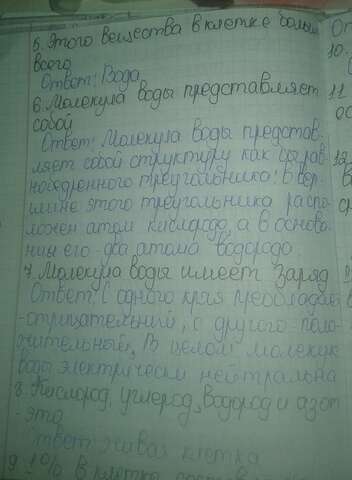 5. Этого вещества в клетке больш
всего
Ответ: Вода
6. Молекула воды представляет
собой
Ответ: Молекула воды представ-
ляет собой структуру как бы рав
нобедренного треугольника: в вер-
шине этого треугольника распо-
ложен атом кислорода, а в основа-
нии его - два атома водорода.
7. Молекула воды имеет заряд
Ответ: С одного края преобладае
- отрицательный, с другого - поло-
жительный, В целом молекул
воды электрически нейтральна
8. Кислород, углерод, водород и азот
- это
твет: живая клетка
9. 1% в клетке
От
10.
11
ос
12.
В